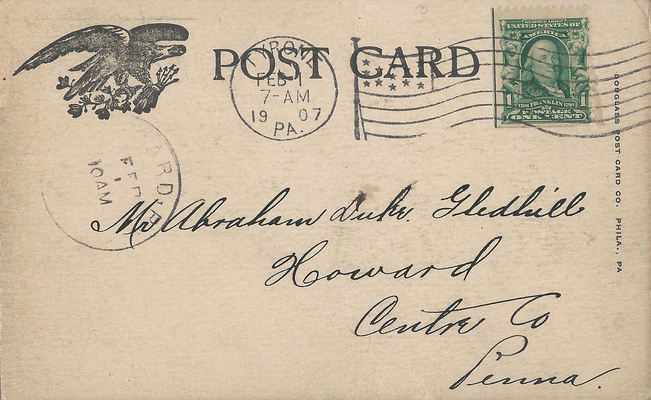 POST CARD
TYRONE
FEB 1
7-AM
1907
PA.
SERIES 1902
UNITED STATES OF
AMERICA
1 1706 FRANKLIN 1790 1
POSTAGE
ONE CENT
FEB
1
10AM
Mr Abraham Duke Gledhill
Howard
Centre Co
Penna.
DOUGLASS POST CARD CO. PHILA., PA